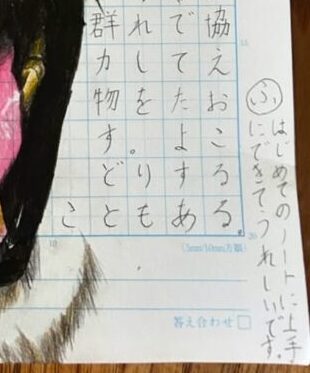 協えおこるる
でてたよすある
れしを。りも
群カ物すどと
こ
ふ
はじめてのノートに上手
にできてうれしいです。
15
20
10
(5mm/10mm方眼)
答え合わせ